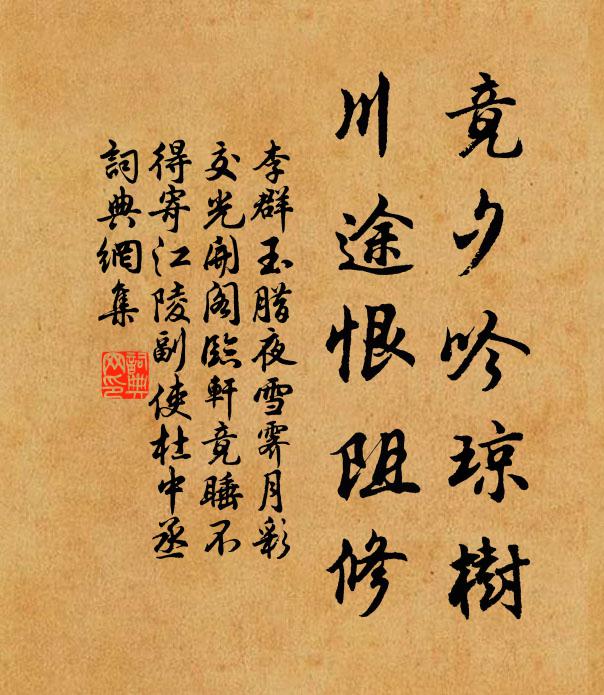 竟夕吟琼樹
川途恨阻修
李群玉腊夜雪霁月彩
交光開阁臨軒竟睡不
得寄江陵副使杜中丞
詞典網集
詞典网印